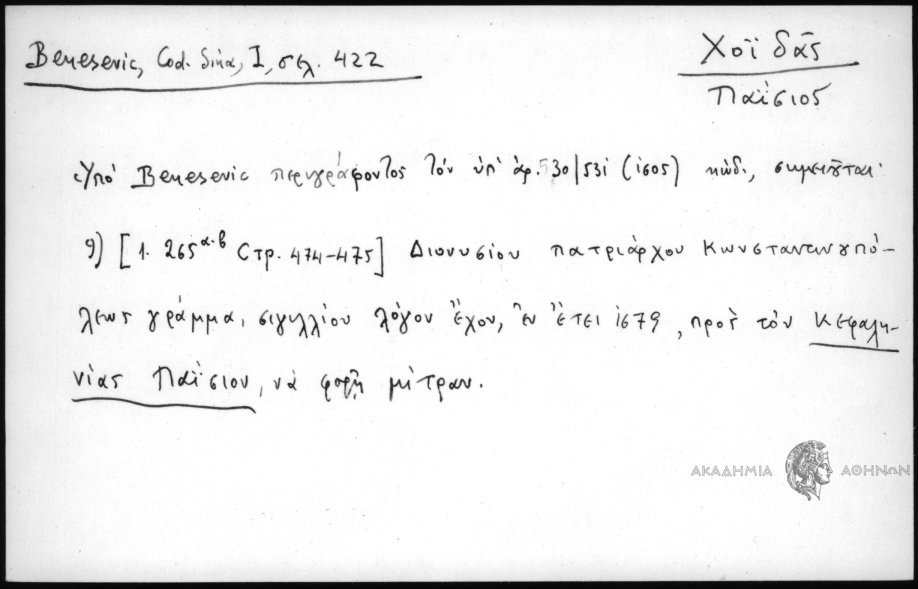 Benesevic, Cod. Sina, I, σελ. 422
Χοϊδᾶς
Παΐσιος
Ὑπό Benesevic περιγράφοντος τόν ὑπ' ἀρ. 530/531 (1605) κώδ., σημειοῦται·
9) [1. 265α-β Стр. 474-475] Διονυσίου πατριάρχου Κωνσταντινουπό-
λεως γράμμα, σιγιλλίου λόγον ἔχον, ἐν ἔτει 1679, πρός τόν Κεφαλη-
νίας Παΐσιον, νά φορῇ μίτραν.
ΑΚΑΔΗΜΙΑ ΑΘΗΝΩΝ